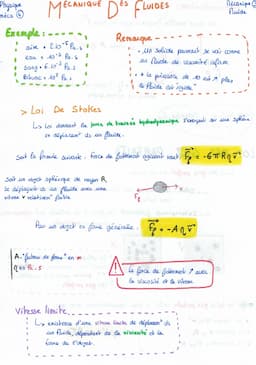 Physique
MÉCANIQUE DES FLUIDES
Mécanique
Fluide
Exemple :
Remarque
air = 2.10⁻⁵ Pa.s
eau = 10⁻³ Pa.s
sang = 6.10⁻³ Pa.s
• Un solide pourrait se voir comme
un fluide de viscosité infinie
+ la présence de
+ plus
le fluide est
> Loi De Stokes
↳ Loi donnant la force de traînée hydrodynamique s'exerçant sur une sphère
se déplaçant ds un fluide.
Soit la formule suivante : Force de frottement agissant vaut F⃗f = -6πRηv⃗
Soit un objet sphérique de rayon R,
se déplaçant ds un fluide avec une
vitesse v relativement faible
Ff
Pour un objet de forme générale : F⃗f = -Aηv⃗
A = "facteur de forme" en m
η en Pa.s
La force de frottement ↗ avec
la viscosité et la vitesse.
Vitesse limite
↳ existence d'une vitesse limite de déplacemt ds
un fluide, dépendante de la viscosité et la
forme de l'objet.